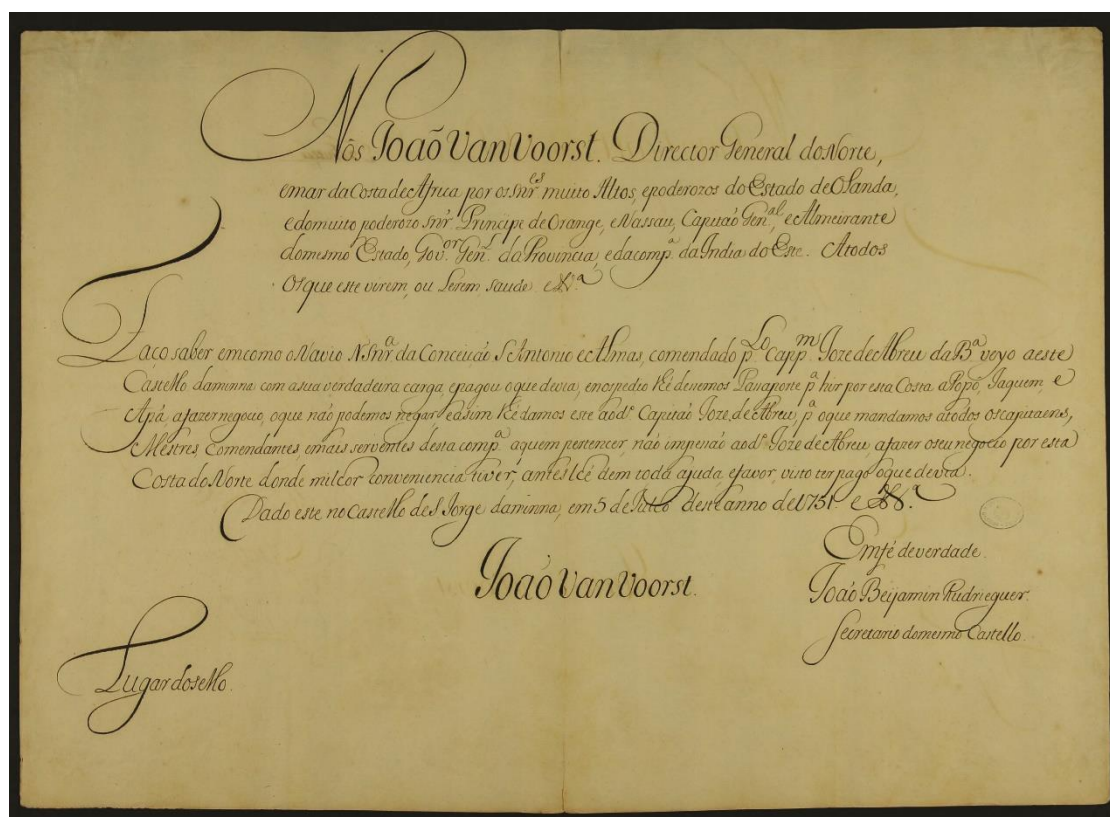 Nós Joaõ Van Voorst. Director General do Norte,
emar da Costa de Africa por os Snr.es muito Altos, epoderozos do Estado de Olanda,
edomuito poderozo Snr. Principe de Orange, eNassau, Capitaõ Gen.al, eAlmeirante
domesmo Estado, Gov.or Gen.l da Provincia, edacomp.a da India do Este. Atodos
Os que este virem, ou Lerem, saude &.a
Faço saber emcomo o Navio N. Snr.a da Conceicaõ S. Antonio eAlmas, comendado p.Lo Capp.m Joze de Abreu da B.a veyo aeste
Castello damina com asua verdadeira carga, epagou oque devia, enospedio lhé dessemos Passaporte p.a hir por esta Costa a Popó, Jaquem, e
Apá, afazer negocio, oque não podemos negar, easim lhé damos este aod.o Capitaõ Joze de Abreu, p.a oque mandamos atódos os capitaens,
Mestres, Comendantes, emais serventes desta comp.a aquem pertencer, não impessaõ aod.o Joze de Abreu, afazer oseu negocio por esta
Costa do Norte donde milhor conveniencia tiver, antes lhé dem toda ajuda, efavor, visto ter pago oque devia.
Dado este no Castello de S. Jorge damina, em 5 de Julho deste anno de 1751. e &.a
Emfé deverdade.
Joaõ Van Voorst.
Joaõ Beijamin
Secretario domesmo Castello.
Lugar dosello.